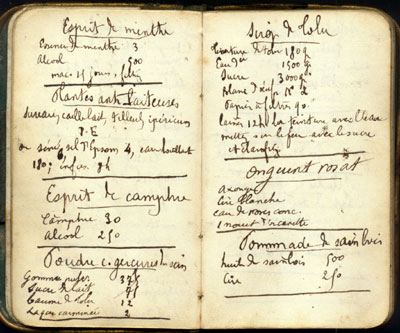 Esprit de menthe
Essence de menthe 3
Alcool 500
mac. 15 jours, filtrez
Plantes anti laiteuses
sureau, caille lait, tilleul, ipericum
P.E
ou séné, sel d'Epsom 4, eau bouillante
180; infus. 8h
Esprit de camphre
Camphre 30
alcool 250
Poudre c. gerçures du sein
Gomme pulv. 375
Sucre de lait
Baume de tolu 12
Laque carminée 2
Sirop de tolu
Teinture de tolu 180 g
Eau 1500 g
Sucre 3000 g
Blanc d'œuf No 2
Papier à filtrer
laissez 12h la teinture avec l'eau
mettez sur le feu avec le sucre
et clarifiez
onguent rosat
axonge
Cire blanche
eau de roses conc.
1 nouet d'orcanette
Pommade de sainbois
huile de sainbois 500
Cire 250